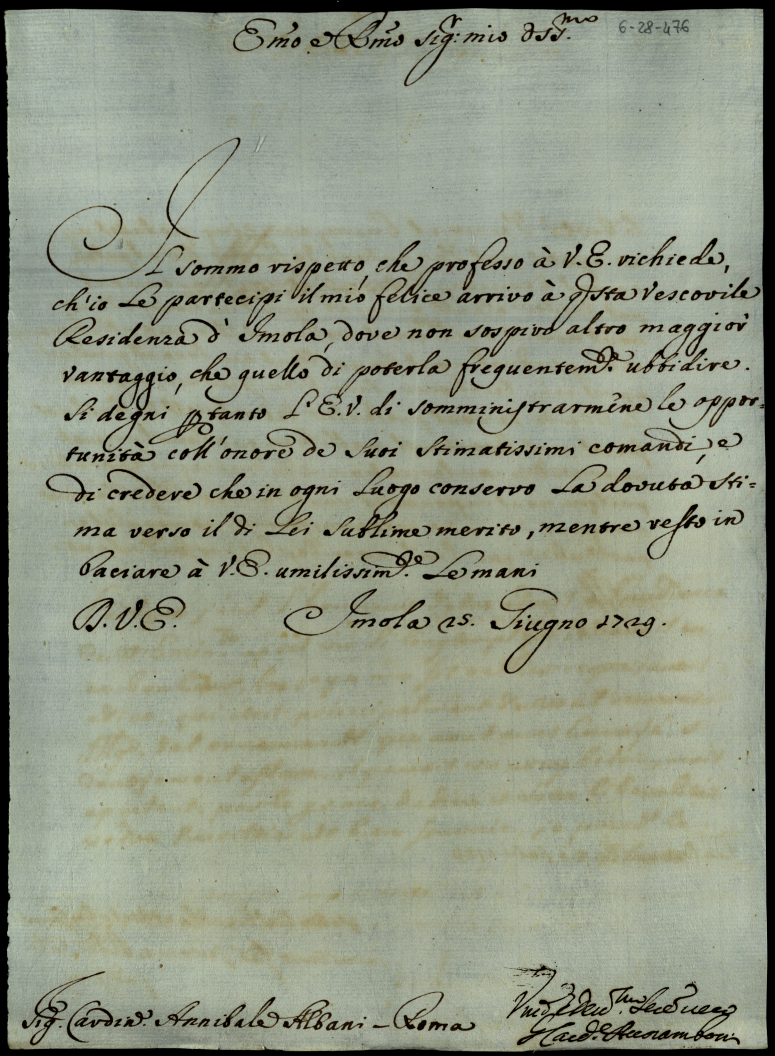 Emo e Rmo Sig:r mio Oss.mo
6-28-476
Il sommo rispetto, che professo à V.E. richiede,
ch'io Le partecipi il mio felice arrivo à qsta Vescovile
Residenza d' Imola, dove non sospiro altro maggior
vantaggio, che quello di poterla frequentem.te ubbidire.
Si degni ptanto L'E.V. di somministrarmene le oppor=
tunità coll'onore de suoi stimatissimi comandi, e
di credere che in ogni Luogo conservo La dovuta sti=
ma verso il di Lei sublime merito, mentre resto in
baciare à V.E. umilissim.te Le mani
D. V. E. Imola 25. Giugno 1729.
Sig. Cardin. Annibale Albani - Roma